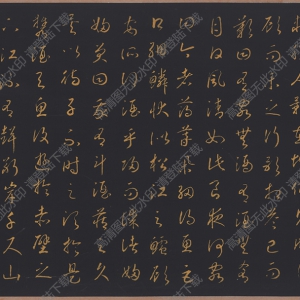 顧而樂之行歌相答已而
歎曰有客無酒有酒無肴
月白風清如此良夜何客
曰今者薄暮舉網得魚巨
口細鱗狀似松江之鱸顧
安所得酒乎歸而謀諸婦
婦曰我有斗酒藏之久
矣以待子不時之需於是
攜酒與魚復遊於赤壁之
下江流有聲斷岸千尺山